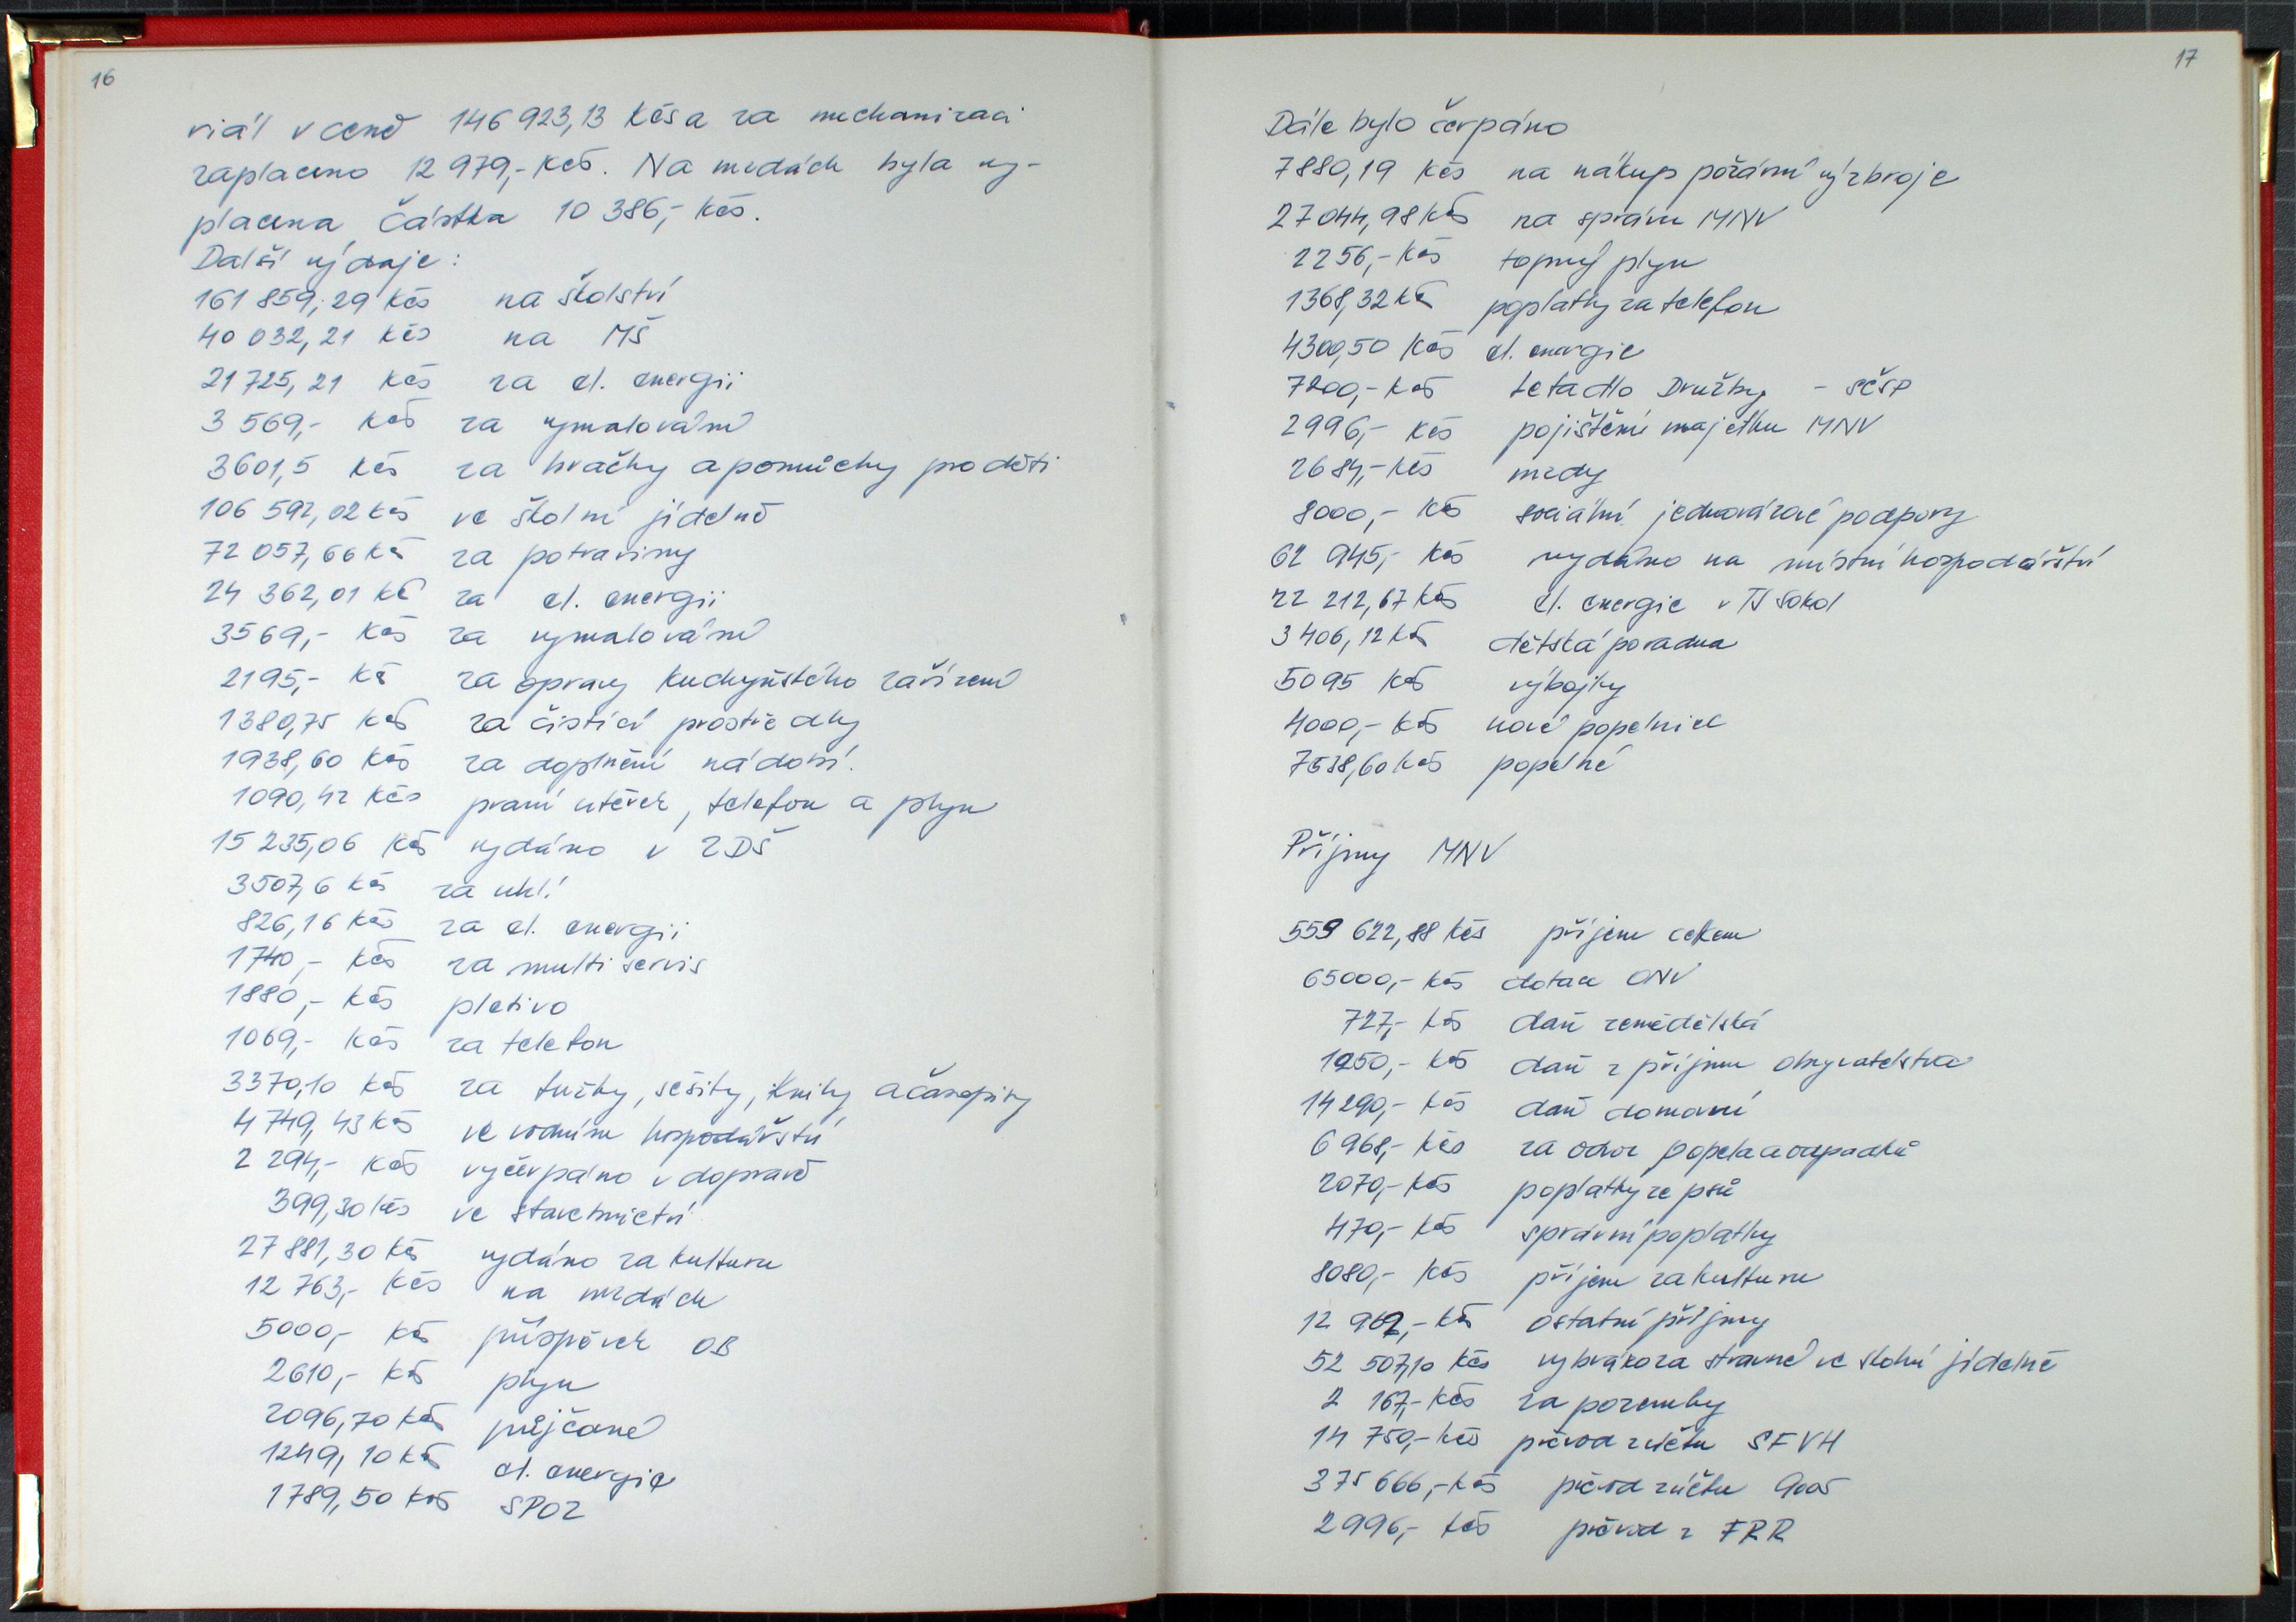 16
riál v ceně 146 923,13 Kčs a za mechanizaci
zaplaceno 12 979,- Kčs. Na mzdách byla vy-
placena částka 10 386,- Kčs.
Další výdaje:
161 859,29 Kčs na školství
40 032,21 Kčs na MŠ
21 725,21 Kčs za el. energii
3 569,- Kčs za vymalování
3601,5 Kčs za hračky a pomůcky pro děti
106 592,02 Kčs ve školní jídelně
72 057,66 Kčs za potraviny
24 362,01 Kčs za el. energii
3569,- Kčs za vymalování
2195,- Kčs za opravy kuchyňského zařízení
1380,75 Kčs za čistící prostředky
1938,60 Kčs za doplnění nádobí.
1090,42 Kčs praní utěrek, telefon a plyn
15 235,06 Kčs vydáno v ZDŠ
3507,6 Kčs za uhlí
826,16 Kčs za el. energii
1740,- Kčs za multiservis
1880,- Kčs pletivo
1069,- Kčs za telefon
3370,10 Kčs za tužky, sešity, knihy a časopisy
4 749,43 Kčs ve vodním hospodářství
2 294,- Kčs vyčerpáno v dopravě
399,30 Kčs ve stavebnictví
27 881,30 Kčs vydáno za kulturu
12 763,- Kčs na mzdách
5000,- Kčs příspěvek OB
2610,- Kčs plyn
2096,70 Kčs půjčovné
1249,10 Kčs el. energie
1789,50 Kčs SPOZ
17
Dále bylo čerpáno
7880,19 Kčs na nákup požární výzbroje
27044,98 Kčs na správu MNV
2256,- Kčs topný plyn
1368,32 Kčs poplatky za telefon
4300,50 Kčs el. energie
7200,- Kčs letadlo Družby - SČSP
2996,- Kčs pojištění majetku MNV
2684,- Kčs mzdy
8000,- Kčs sociální jednorázové podpory
62 945,- Kčs vydáno na místní hospodářství
22 212,67 Kčs el. energie v TJ Sokol
3 406,12 Kčs dětská poradna
5095 Kčs výbojky
4000,- Kčs nové popelnice
7538,60 Kčs popelné
Příjmy MNV
559 622,88 Kčs příjem celkem
65000,- Kčs dotace ONV
727,- Kčs daň zemědělská
1250,- Kčs daň z příjmu obyvatelstva
14 290,- Kčs daň domovní
6 968,- Kčs za odvoz popela a odpadků
2070,- Kčs poplatky ze psů
470,- Kčs správní poplatky
8080,- Kčs příjem za kulturu
12 Kčs ostatní příjmy
52 507,10 Kčs vybráno za stravné ve školní jídelně
2 167,- Kčs za pozemky
14 750,- Kčs převod z účtu SFVH
375 666,- Kčs převod z účtu 9005
2996,- Kčs převod z FRR